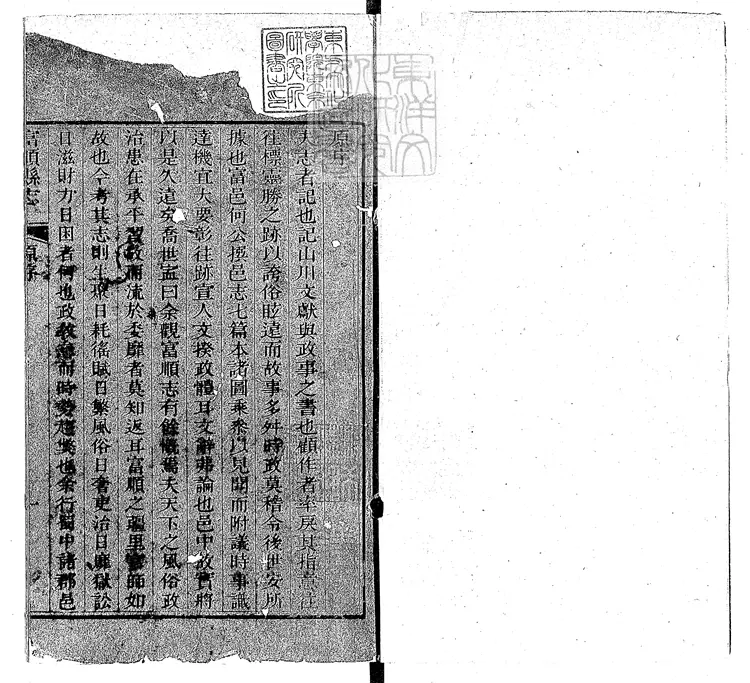 原序
夫志者記也記山川文獻與政事之書也顧作者率戾其指意
往標靈勝之跡以誇俗眩遠而故事多舛時政莫稽令後世安所
據也富邑何公授邑志七篇本諸圖乘叅以見聞而附議時事識
達機宜大要彰往跡宣人文揆政體耳文辭弗論也邑中故實將
以是久遠矣喬世寍曰余觀富順志有餘慨焉夫天下之風俗政
治患在承平政而流於委靡者莫知返耳富順之疆里如
故也今考其志則生眾日耗徭賦日繁風俗日奢吏治日靡獄訟
日滋財力日困者何也政而時也余行蜀中諸郡邑
富順縣志 原序